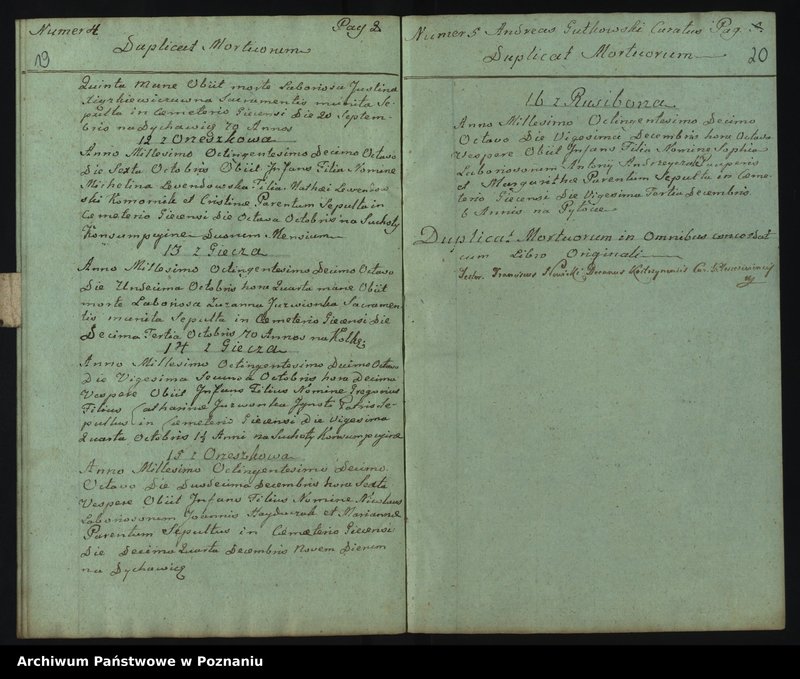 Numer 4 Pag 2
19
Duplicat Mortuorum
Quinta mane Obiit morte Laboriosa Justina
Sacramentis munita Se-
pulta in Cemeterio Giecensi Die 20 Septem-
bris na Dychawicę 70 Annos
12 z Orzeszkowa
Anno Millesimo Octingentesimo Decimo Octavo
Die Sexta Octobris Obiit Infans Filia Nomine
Michelina Levendowska Filia Mathei Levendow-
ski Komornik et Cristine Parentum Sepulta in
Cemeterio Giecensi Die Octava Octobris na Suchoty
Konsumpcyine Duorum Mensium
13 z Giecza
Anno Millesimo Octingentesimo Decimo Octavo
Die Undecima Octobris hora Quarta mane Obiit
morte Laboriosa Zuzanna Jurwionka Sacramen-
tis munita Sepulta in Cemeterio Giecensi Die
Decima Tertia Octobris 70 Annos na Kolkę
14 z Giecza
Anno Millesimo Octingentesimo Decimo Octavo
Die Vigesima Secunda Octobris hora Decima
Vespere Obiit Infans Filius Nomine Gregorius
Filius Catharinae Jurwonka Ignoti Patris Se-
pultus in Cemeterio Giecensi Die Vigesima
Quarta Octobris 1½ Anni na Suchoty Konsumpcyine
15 z Orzeszkowa
Anno Millesimo Octingentesimo Decimo
Octavo Die Duodecima Decembris hora Sexta
Vespere Obiit Infans Filius Nomine Nicolaus
Laboriosorum Joannis Hayduzak et Marianna
Parentum Sepultus in Cemeterio Giecensi
Die Decima Quarta Decembris Novem Dierum
na Dychawicę
Numer 5 Andreas Gutkowski Curatus Pag
20
Duplicat Mortuorum
16 z Rusibona
Anno Millesimo Octingentesimo Decimo
Octavo Die Vigesima Decembris hora Octava
Vespere Obiit Infans Filia Nomine Sophia
Laboriosorum Antony Andrzejczak
et Margarithe Parentum Sepulta in Ceme-
terio Giecensi Die Vigesima Tertia Decembris
6 Annis na
Duplicat Mortuorum in Omnibus concordat
cum Libro Originali
Franciscus Nowicki Decanus
Archiwum Państwowe w Poznaniu